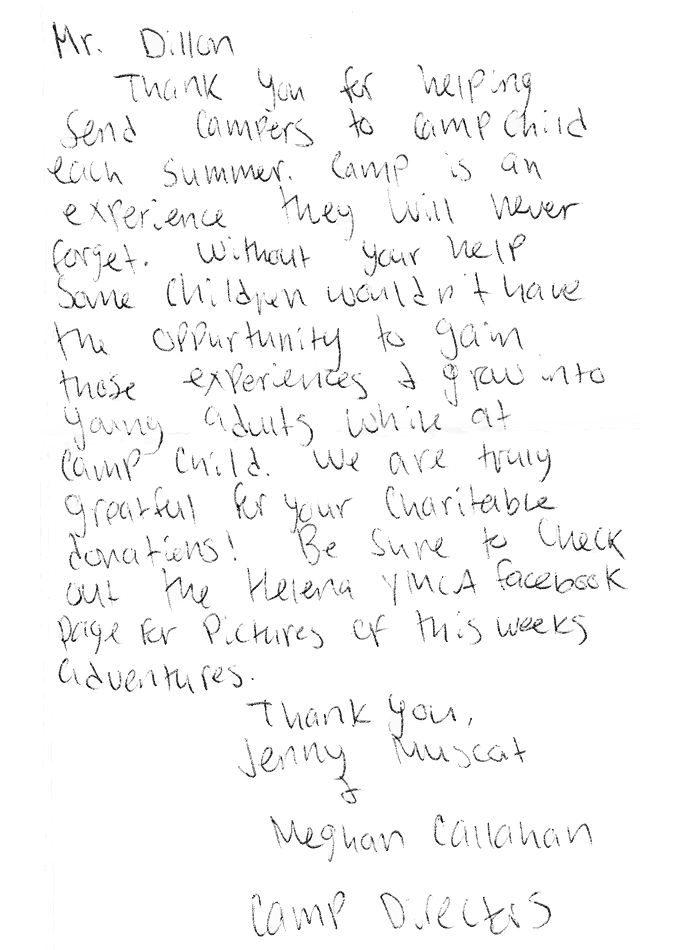 Mr. Dillon
Thank you for helping
Send Campers to Camp Child
each summer. Camp is an
experience they will never
forget. Without your help
Some Children wouldn't have
the oppurtunity to gain
those experiences & grow into
young adults while at
Camp Child. We are truly
greatful for your Charitable
donations! Be Sure to Check
out the Helena YMCA facebook
page for Pictures of this weeks
adventures.
Thank you,
Jenny Muscat
&
Meghan Callahan
Camp Directors